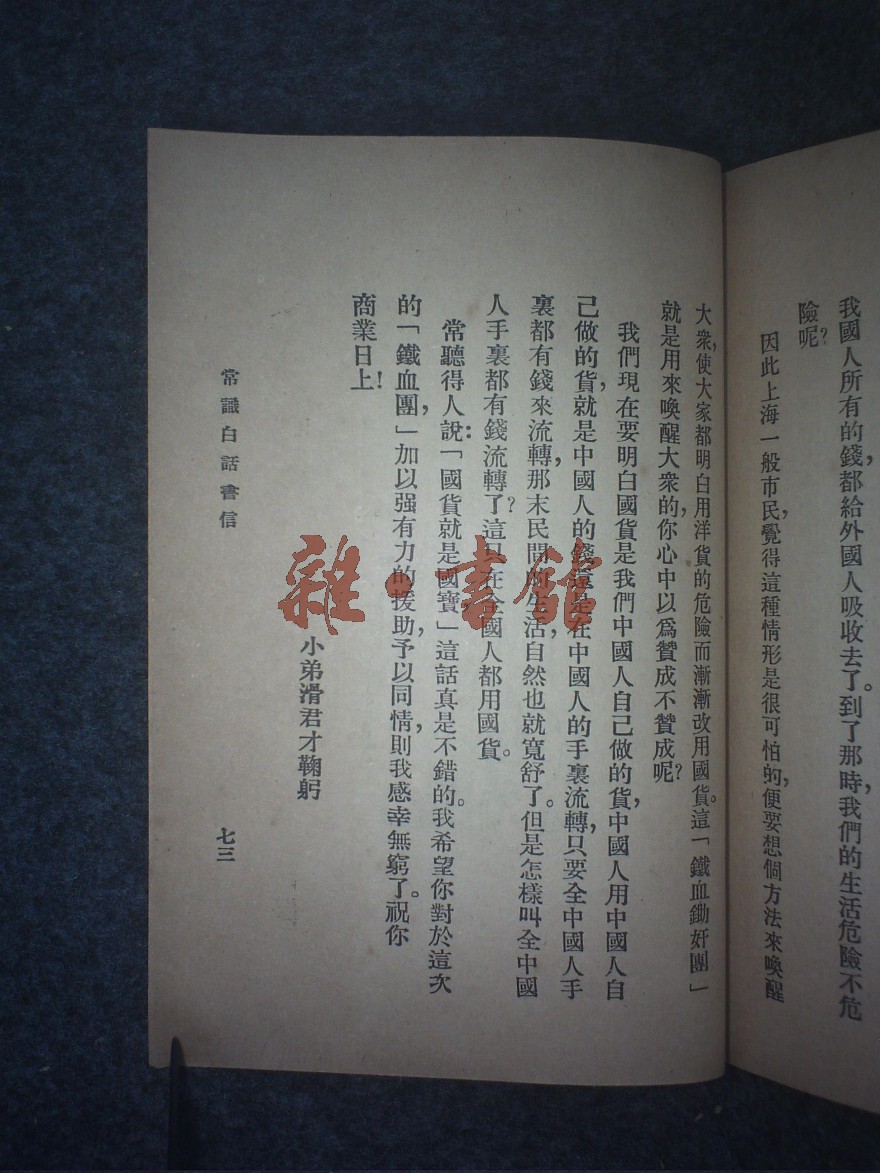 我國人所有的錢,都給外國人吸收去了。到了那時,我們的生活危險不危
險呢?
因此上海一般市民,覺得這種情形是很可怕的,便要想個方法來喚醒
大衆,使大家都明白用洋貨的危險而漸漸改用國貨。這「鐵血鋤奸團」
就是用來喚醒大衆的,你心中以爲贊成不贊成呢?
我們現在要明白國貨是我們中國人自己做的貨,中國人用中國人自
己做的貨,就是中國人的錢還是在中國人的手裏流轉,只要全中國人手
裏都有錢來流轉,那末民間的生活,自然也就寬舒了。但是怎樣叫全中國
人手裏都有錢流轉了?這只在全國人都用國貨。
常聽得人說:「國貨就是國寶,」這話真是不錯的。我希望你對於這次
的「鐵血團,」加以强有力的援助,予以同情,則我感幸無窮了。祝你
商業日上!
小弟滑君才鞠躬
常識白話書信
七三
雜·書館